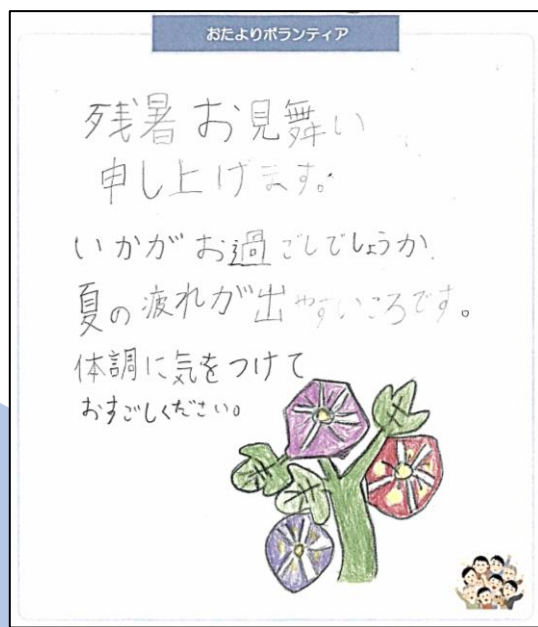 おたよりボランティア
残暑お見舞い
申し上げます。
いかがお過ごしでしょうか.
夏の疲れが出やすいころです。
体調に気をつけて
おすごしください。